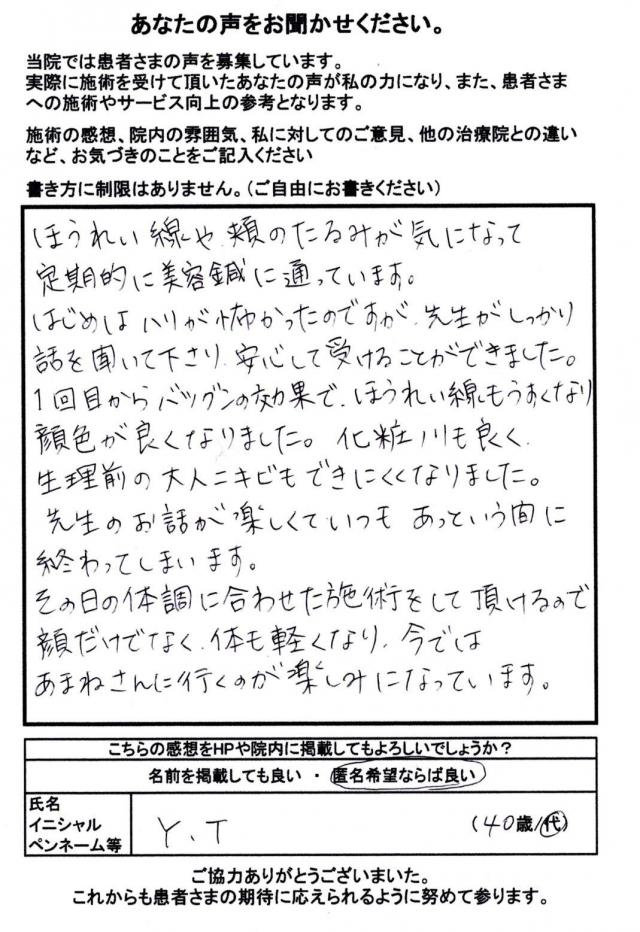 あなたの声をお聞かせください。
当院では患者さまの声を募集しています。
実際に施術を受けて頂いたあなたの声が私の力になり、また、患者さま
への施術やサービス向上の参考となります。
施術の感想、院内の雰囲気、私に対してのご意見、他の治療院との違い
など、お気づきのことをご記入ください
書き方に制限はありません。（ご自由にお書きください）
ほうれい線や頬のたるみが気になって
定期的に美容鍼に通っています。
はじめはハリが怖かったのですが、先生がしっかり
話を聞いて下さり、安心して受けることができました。
1回目からバツグンの効果で、ほうれい線もうすくなり
顔色が良くなりました。化粧ノリも良く、
生理前の大人ニキビもできにくくなりました。
先生のお話が楽しくていつも あっという間に
終わってしまいます。
その日の体調に合わせた施術をして頂けるので
顔だけでなく、体も軽くなり、今では
あまねさんに行くのが楽しみになっています。
こちらの感想をHPや院内に掲載してもよろしいでしょうか？
名前を掲載しても良い ・ 匿名希望ならば良い
氏名
イニシャル
ペンネーム等
Y.T
（40歳/代）
ご協力ありがとうございまいた。
これからも患者さまの期待に応えられるように努めて参ります。